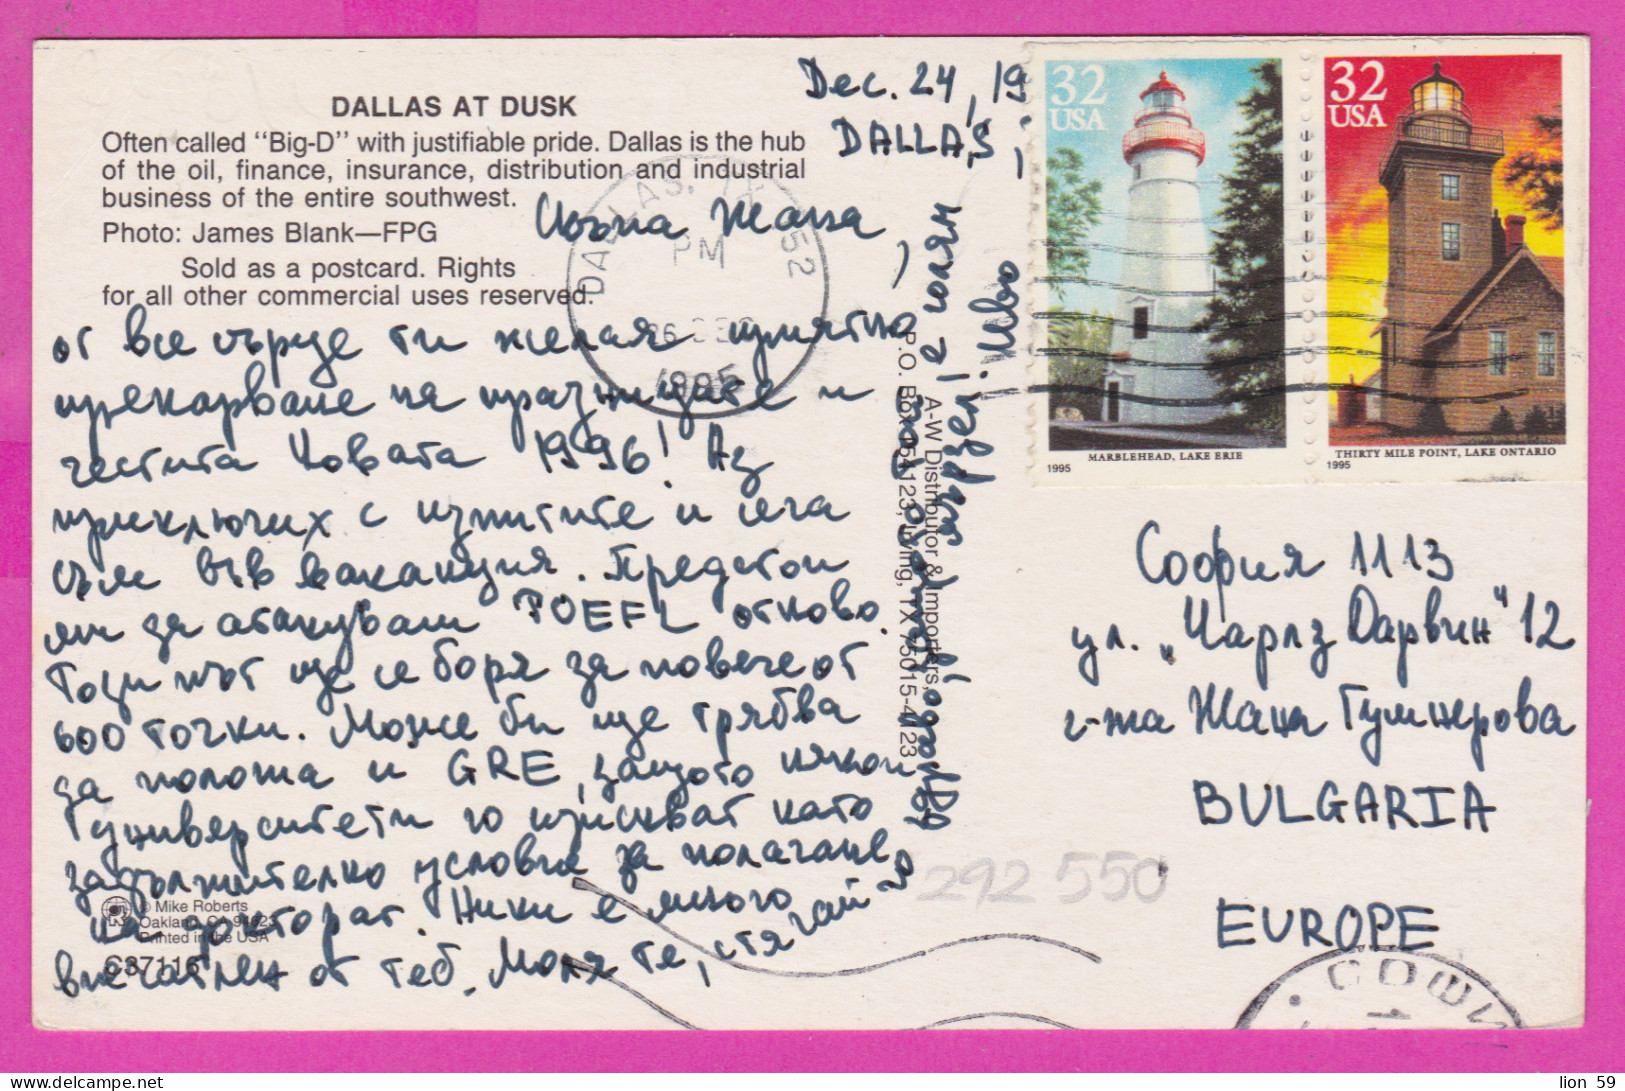 DALLAS AT DUSK
Often called "Big-D" with justifiable pride. Dallas is the hub
of the oil, finance, insurance, distribution and industrial
business of the entire southwest.
Photo: James Blank—FPG
Sold as a postcard. Rights
for all other commercial uses reserved.
Dec. 24, 19
DALLAS,
Жана,
от все сърце ти желая приятно
прекарване на празниците и
честита Новата 1996! Аз
приключих с изпитите и сега
съм във ваканция. Предстои
ми да атакувам TOEFL отново.
Този път ще се боря за повече от
600 точки. Може би ще трябва
да положа и GRE, защото някои
университети го изискват като
задължително условие за полагане
на докторат. Ники е много
впечатлен от теб. Моля те, стягай го
здравоj
е голям
мързел!
Иво
A-W Distributor & Importers,
P.O. Box 154123, Irving, TX 75015-4123
© Mike Roberts
Oakland, CA 94623
Printed in the USA
C37116
DALLAS, TX 752
PM
26 DEC
1995
32
USA
MARBLEHEAD, LAKE ERIE
1995
32
USA
THIRTY MILE POINT, LAKE ONTARIO
1995
София 1113
ул. „Чарлз Дарвин" 12
г-жа Жана Гумнерова
BULGARIA
EUROPE
292 550
lion 59